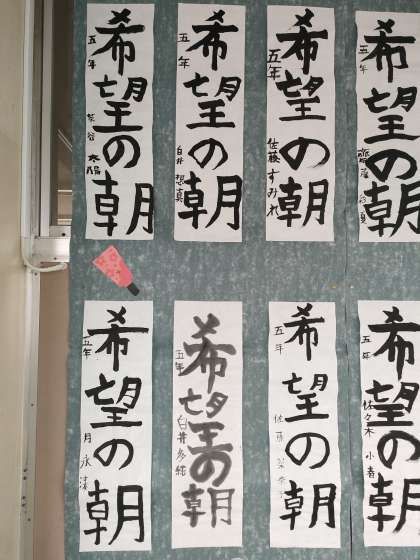 希望の朝
五年
希望の朝
五年
白井
希望の朝
五年
佐藤すみれ
希望の朝
五年
希望の朝
五年
希望の朝
五年
白井
希望の朝
五年
佐藤
希望の朝
五年
佐々木 小春